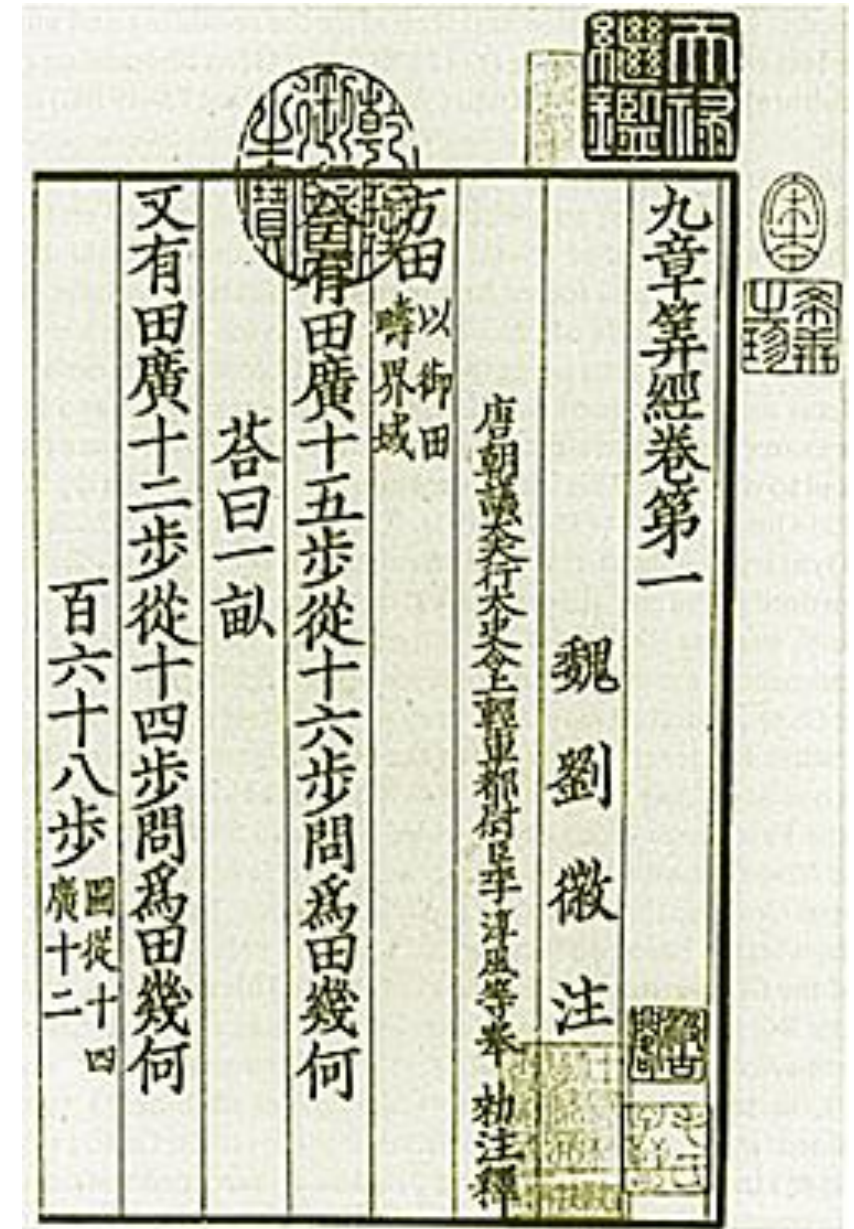 九章筭經卷第一
魏劉徽注
唐朝議大夫行太史令上輕車都尉臣李淳風等奉 勑注釋
方田 以御田
疇界域
今有田廣十五步從十六步問爲田幾何
荅曰一畝
又有田廣十二步從十四步問爲田幾何
百六十八步 圖從十四
廣十二
天祿
繼鑑